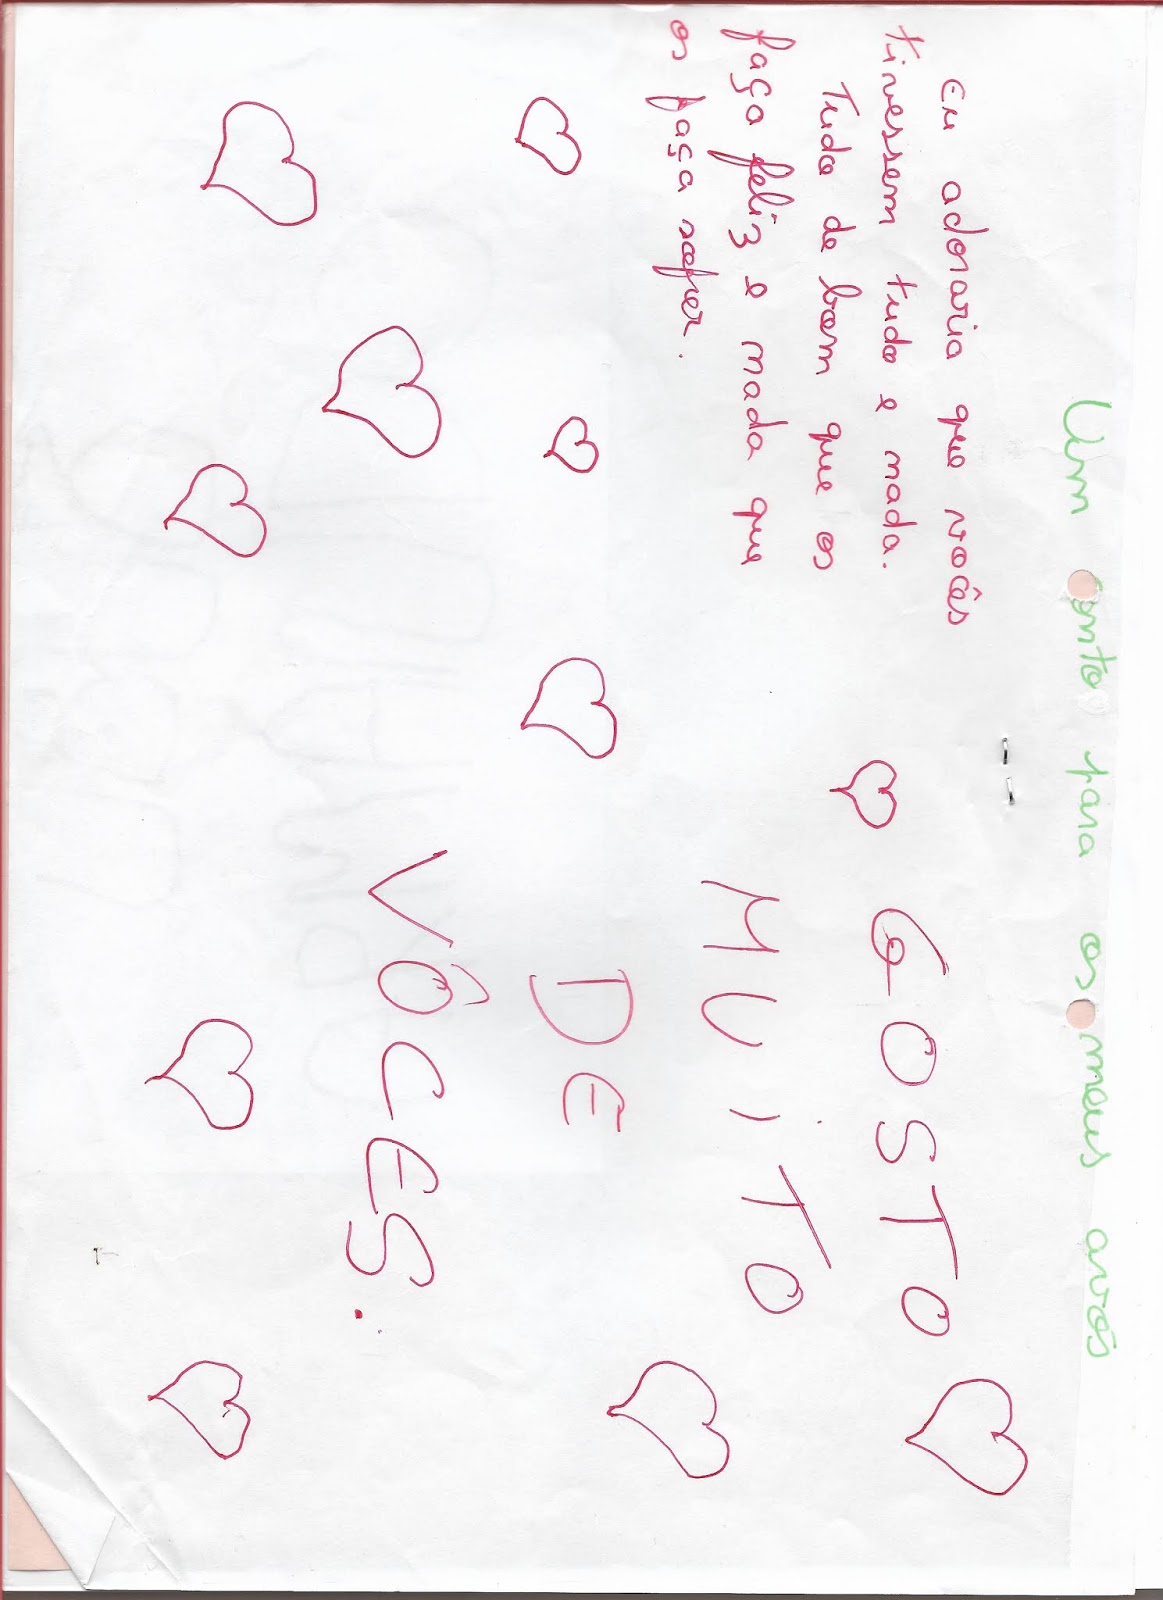 Um conto para os meus avós
Eu adoraria que vocês
tivessem tudo e nada.
Tudo de bom que os
faça feliz e nada que
os faça sofrer.
GOSTO
MUiTO
DE
VÔCES.